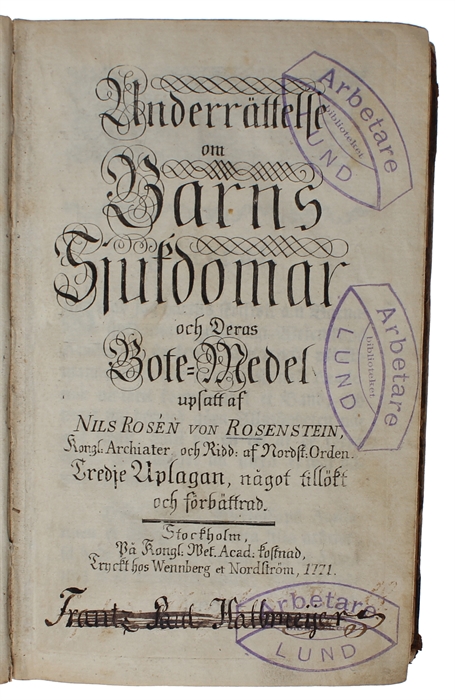 Underrättelse
om
Barns
Sjukdomar
och Deras
Bote=Medel
upsatt af
NILS ROSÉN VON ROSENSTEIN,
Kongl: Archiater och Ridd: af Nordst: Orden.
Tredje Uplagan, något tillökt
och förbättrad.
Stockholm,
På Kongl: Wet. Acad: kostnad,
Tryckt hos Wennberg et Nordström, 1771.
Frantz Paul
Arbetare
biblioteket
LUND
Arbetare
biblioteket
LUND
Arbetare
LUND